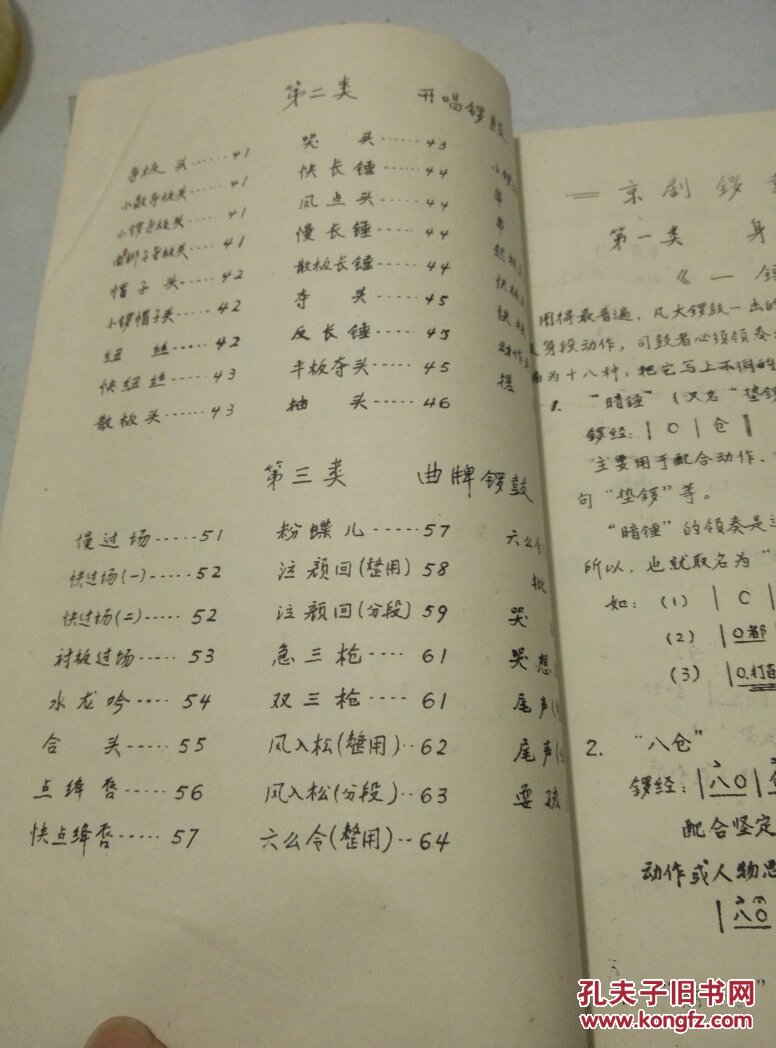 第二类 开唱锣鼓
导板头……41
小鼓导板头……41
小锣导板头……41
梆子导板头……41
帽子头……42
小锣帽子头……42
纽丝……42
快纽丝……43
散板头……43
哭头……43
快长锤……44
凤点头……44
慢长锤……44
散板长锤……44
夺头……45
反长锤……45
平板夺头……45
抽头……46
小锣
快板
动作
搓
第三类 曲牌锣鼓
慢过场……51
快过场(一)……52
快过场(二)……52
衬板过场……53
水龙吟……54
合头……55
点绛唇……56
快点绛唇……57
粉蝶儿……57
泣颜回(整用) 58
泣颜回(分段) 59
急三枪……61
双三枪……61
风入松(整用)..62
风入松(分段)..63
六么令(整用)..64
六么令
批
哭
哭想
尾声(
尾声(
耍孩
京剧锣
第一类 身
《一锣
用得最普遍，凡大锣鼓一击的
身段动作，司鼓者必须领奏
为十八种，把它写上不同的
1. "暗锤"（又名"垫锣
锣经：| 0 | 仓 ‖
主要用于配合动作、
句"垫锣"等。
"暗锤"的领奏是
所以，也就取名为"
如：(1) | 0 |
(2) | 0都
(3) | 0.打
2. "八仓"
锣经：| 八0 |
配合坚定
动作或人物思
| 八0
孔夫子旧书网
www.kongfz.com